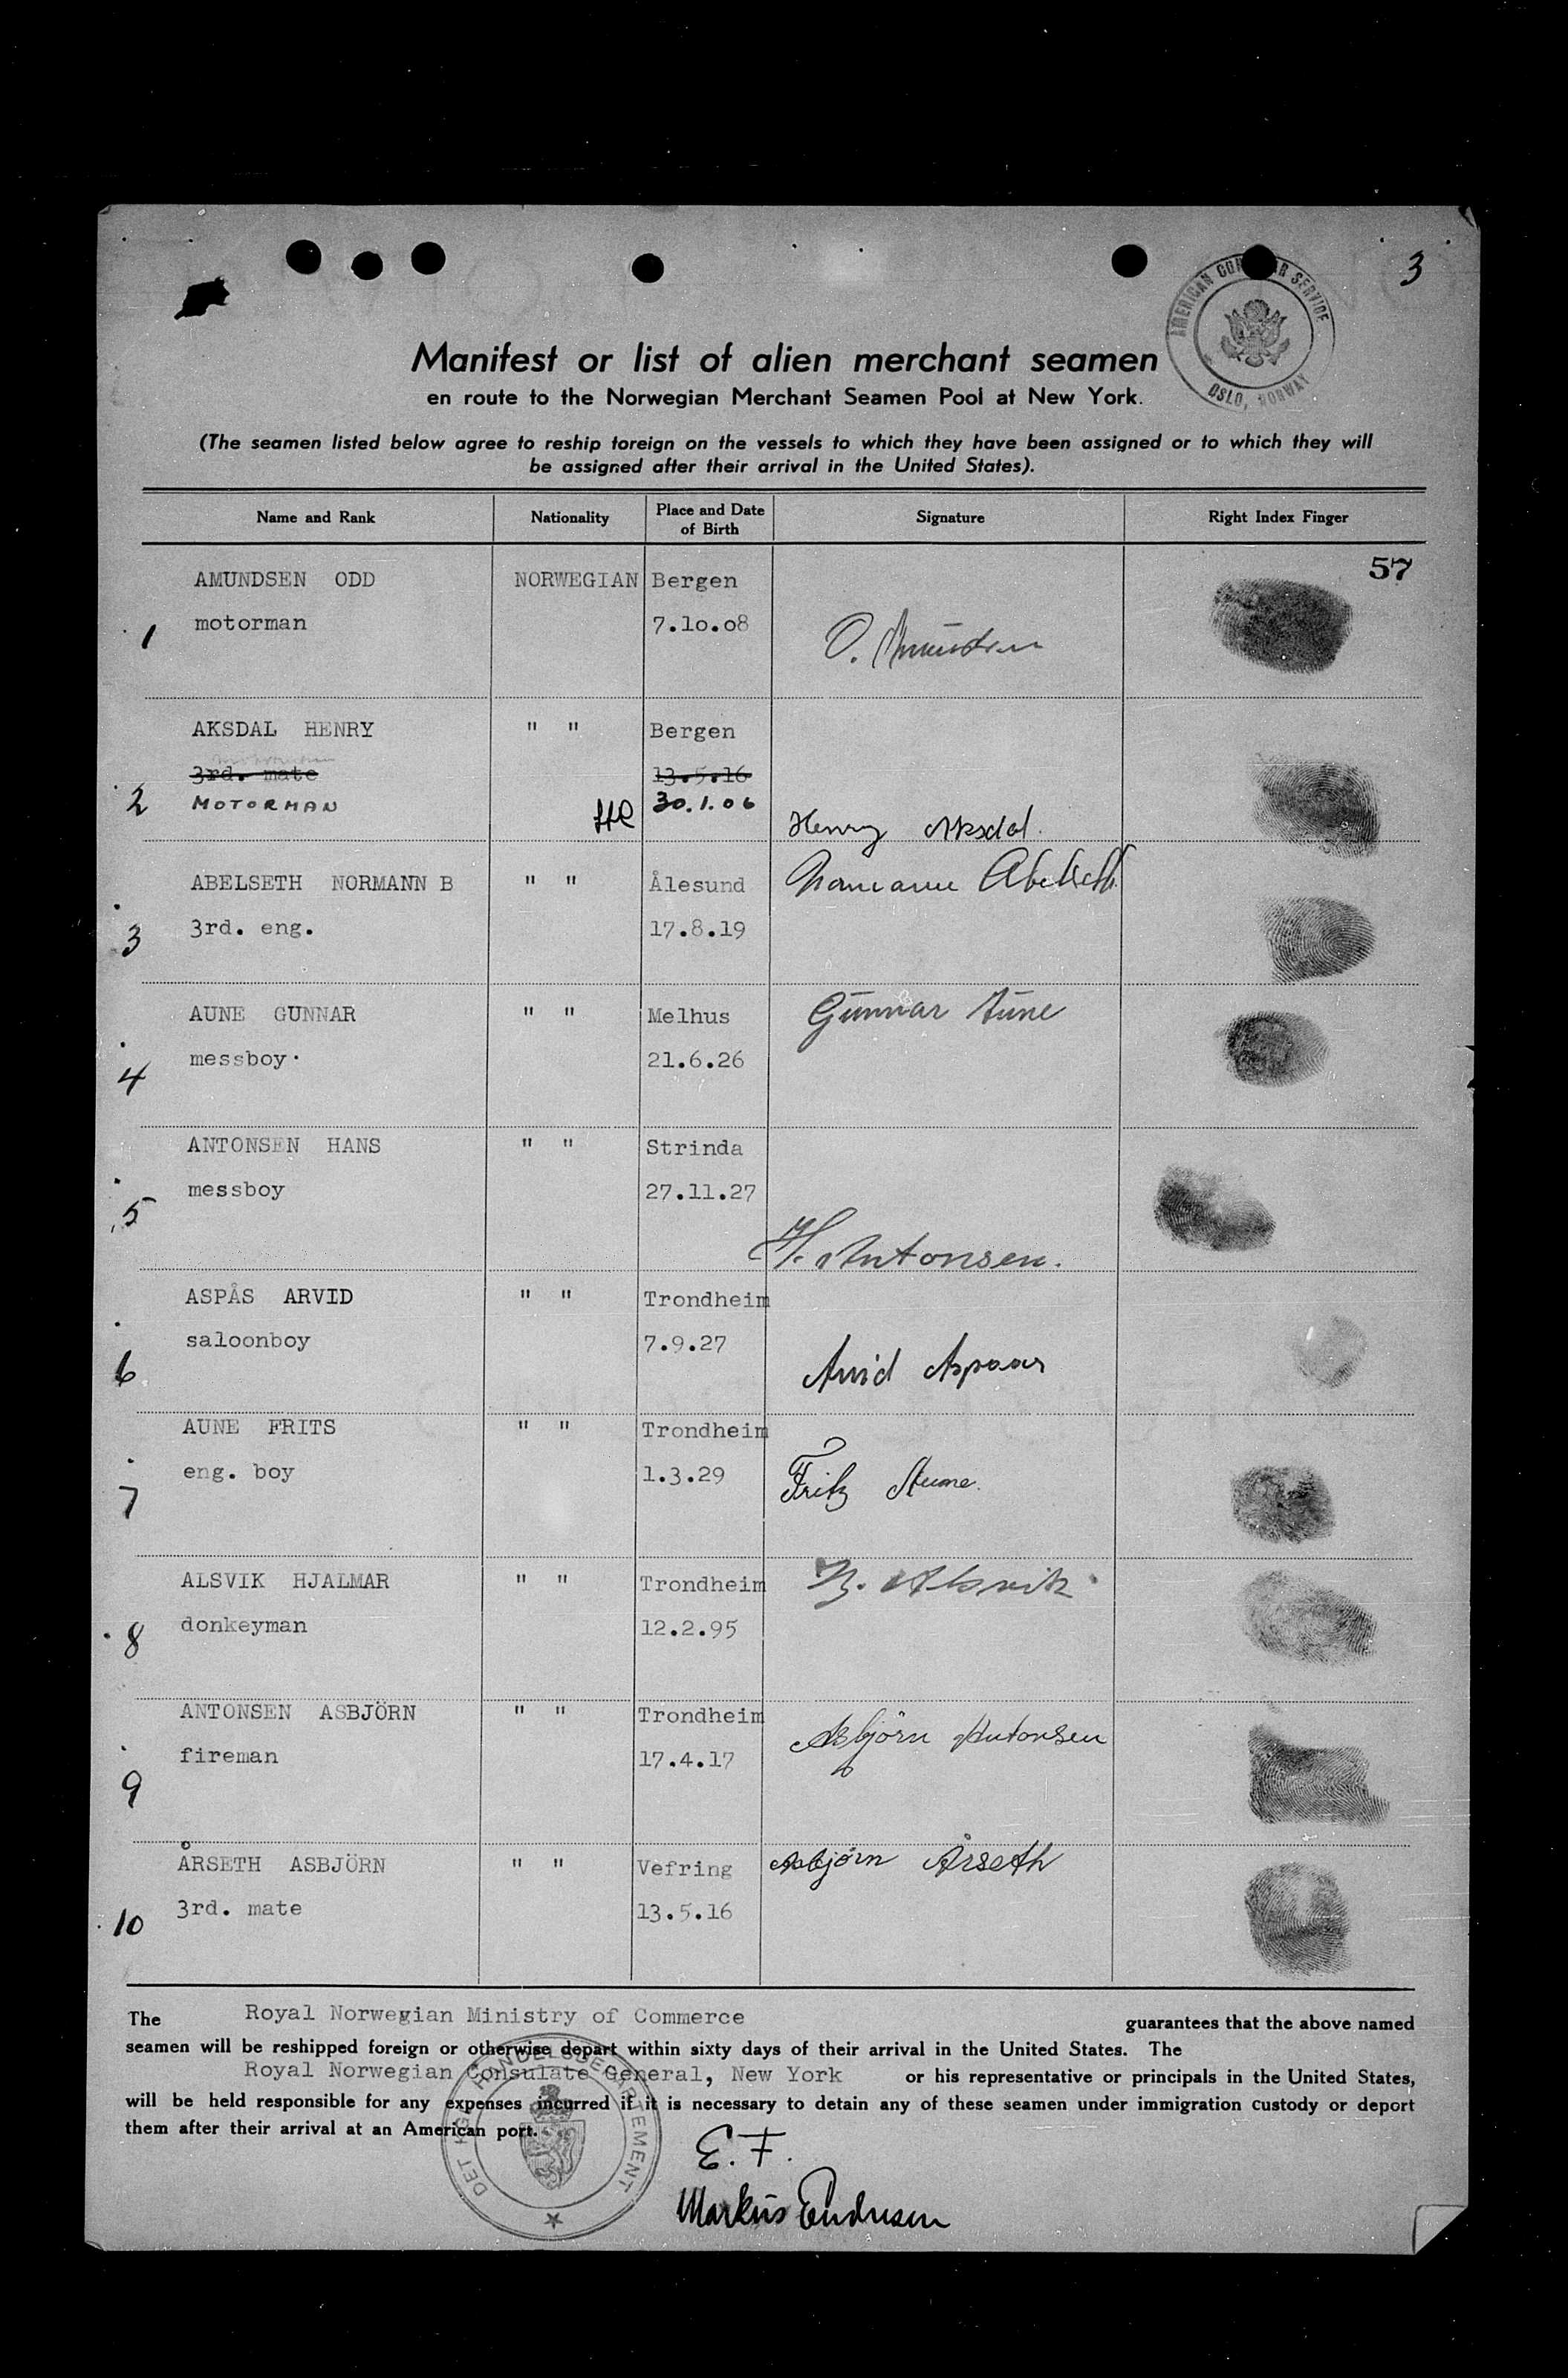 3
AMERICAN CONSULAR SERVICE
OSLO, NORWAY
Manifest or list of alien merchant seamen
en route to the Norwegian Merchant Seamen Pool at New York.
(The seamen listed below agree to reship foreign on the vessels to which they have been assigned or to which they will
be assigned after their arrival in the United States).
Name and Rank Nationality Place and Date of Birth Signature Right Index Finger
57
AMUNDSEN ODD NORWEGIAN Bergen
1 motorman 7.10.08 O. Amundsen
AKSDAL HENRY " " Bergen
3rd. mate 13.5.16
2 MOTORMAN 30.1.06 Henry Aksdal.
ABELSETH NORMANN B " " Ålesund Normann Abelseth
3 3rd. eng. 17.8.19
AUNE GUNNAR " " Melhus Gunnar Aune
4 messboy 21.6.26
ANTONSEN HANS " " Strinda
5 messboy 27.11.27
H. Antonsen.
ASPÅS ARVID " " Trondheim
6 saloonboy 7.9.27 Arvid Aspaas
AUNE FRITS " " Trondheim
7 eng. boy 1.3.29 Fritz Aune.
ALSVIK HJALMAR " " Trondheim H. Alsvik
8 donkeyman 12.2.95
ANTONSEN ASBJÖRN " " Trondheim Asbjörn Antonsen
9 fireman 17.4.17
ÅRSETH ASBJÖRN " " Vefring Asbjørn Årseth
10 3rd. mate 13.5.16
The Royal Norwegian Ministry of Commerce guarantees that the above named
seamen will be reshipped foreign or otherwise depart within sixty days of their arrival in the United States. The
Royal Norwegian Consulate General, New York or his representative or principals in the United States,
will be held responsible for any expenses incurred if it is necessary to detain any of these seamen under immigration custody or deport
them after their arrival at an American port.
DET KGL. HANDELSDEPARTEMENT
E. F.
Markus Endresen